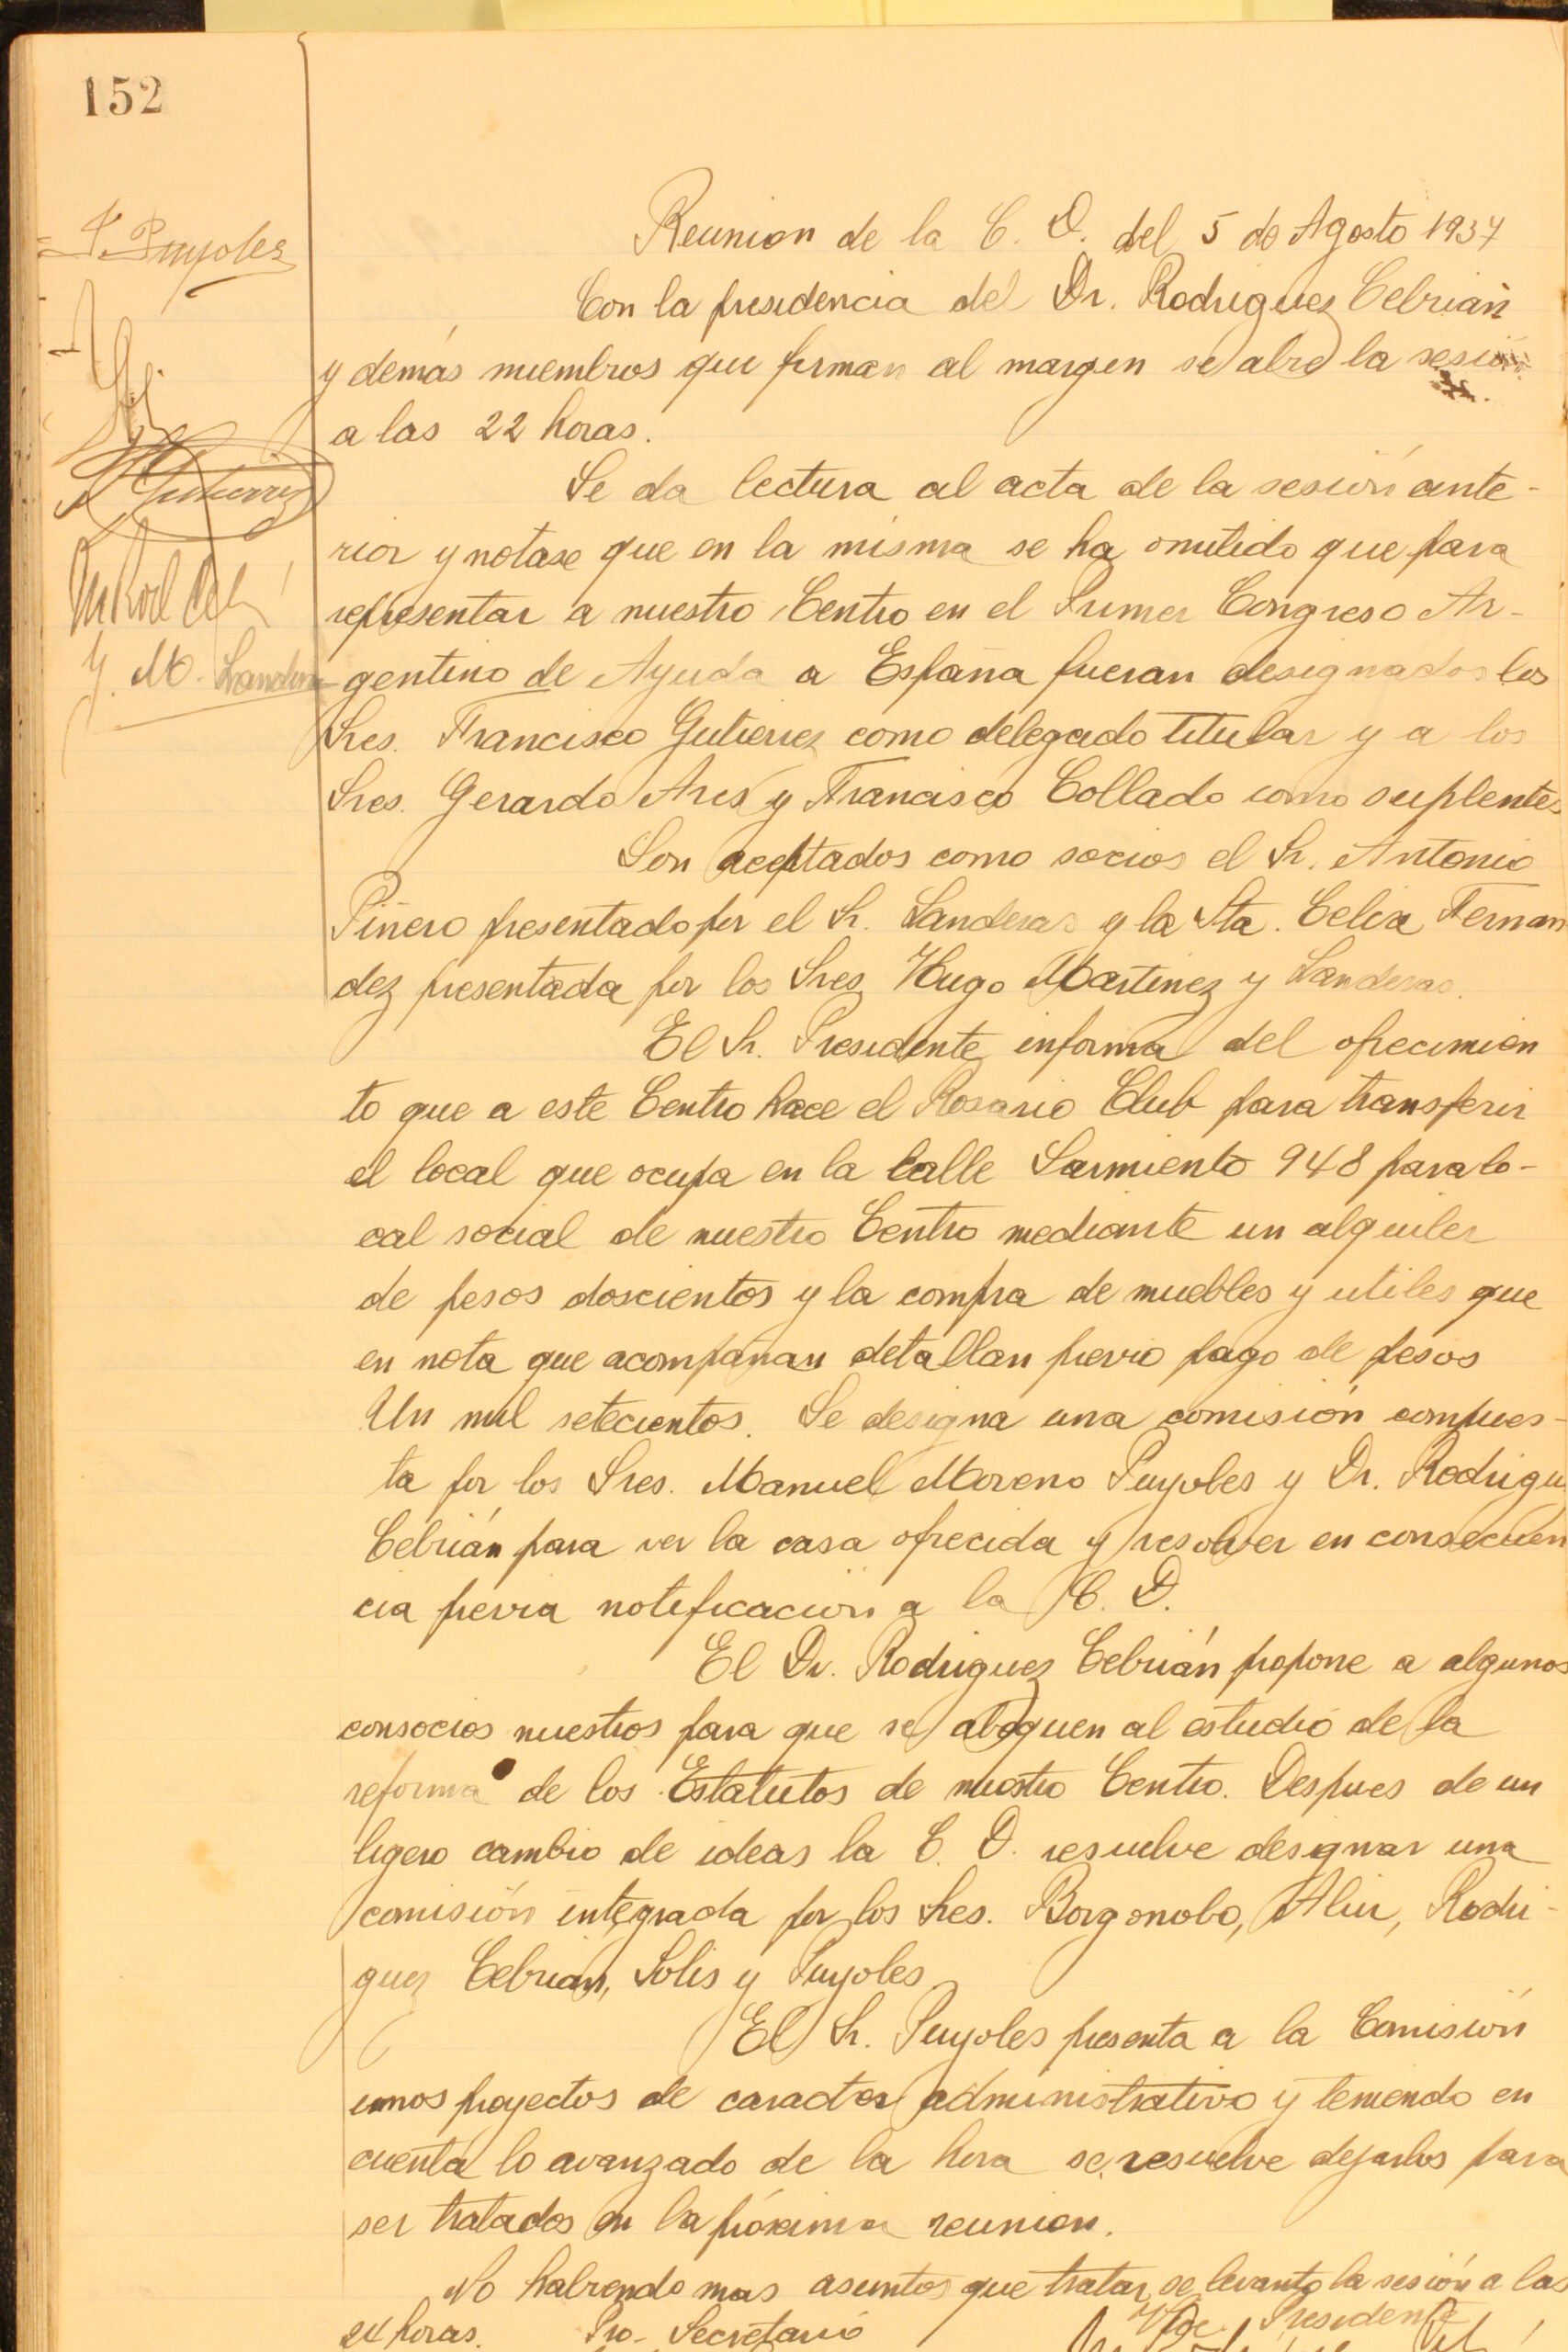 152
Reunion de la C. D. del 5 de Agosto 1937
Con la presidencia del Dr. Rodriguez Cebrián
y demás miembros que firman al margen se abre la sesión
a las 22 horas.
Se da lectura al acta de la sesión ante-
rior y notase que en la misma se ha omitido que para
representar a nuestro Centro en el Primer Congreso Ar-
gentino de Ayuda a España fueran designados los
Sres. Francisco Gutierrez como delegado titular y a los
Sres. Gerardo Ares y Francisco Collado como suplentes
Son aceptados como socios el Sr. Antonio
Piñero presentado por el Sr. Landeras y la Sta. Celia Fernan
dez presentada por los Sres Hugo Martinez y Landeras.
El Sr. Presidente informa del ofrecimien
to que a este Centro hace el Rosario Club para transferir
el local que ocupa en la calle Sarmiento 948 para lo-
cal social de nuestro Centro mediante un alquiler
de pesos doscientos y la compra de muebles y utiles que
en nota que acompañan detallan previo pago de pesos
Un mil setecientos. Se designa una comisión compues-
ta por los Sres. Manuel Moreno Puyoles y Dr. Rodrigu
Cebrián para ver la casa ofrecida y resolver en consecuen
cia previa notificación a la C. D.
El Dr. Rodriguez Cebrián propone a algunos
consocios nuestros para que se aboquen al estudio de la
reforma de los Estatutos de nuestro Centro. Despues de un
ligero cambio de ideas la C. D. resuelve designar una
comisión integrada por los Sres. Borgonobo, Aliu, Rodri-
guez Cebrian, Solis y Puyoles
El Sr. Puyoles presenta a la Comisión
unos proyectos de caracter administrativo y teniendo en
cuenta lo avanzado de la hora se resuelve dejarlos para
ser tratados en la próxima reunion.
No habiendo mas asuntos que tratar se levanto la sesión a las
24 horas. Pro-Secretario Vice Presidente
Puyoles
Gutierrez
M. Landeras